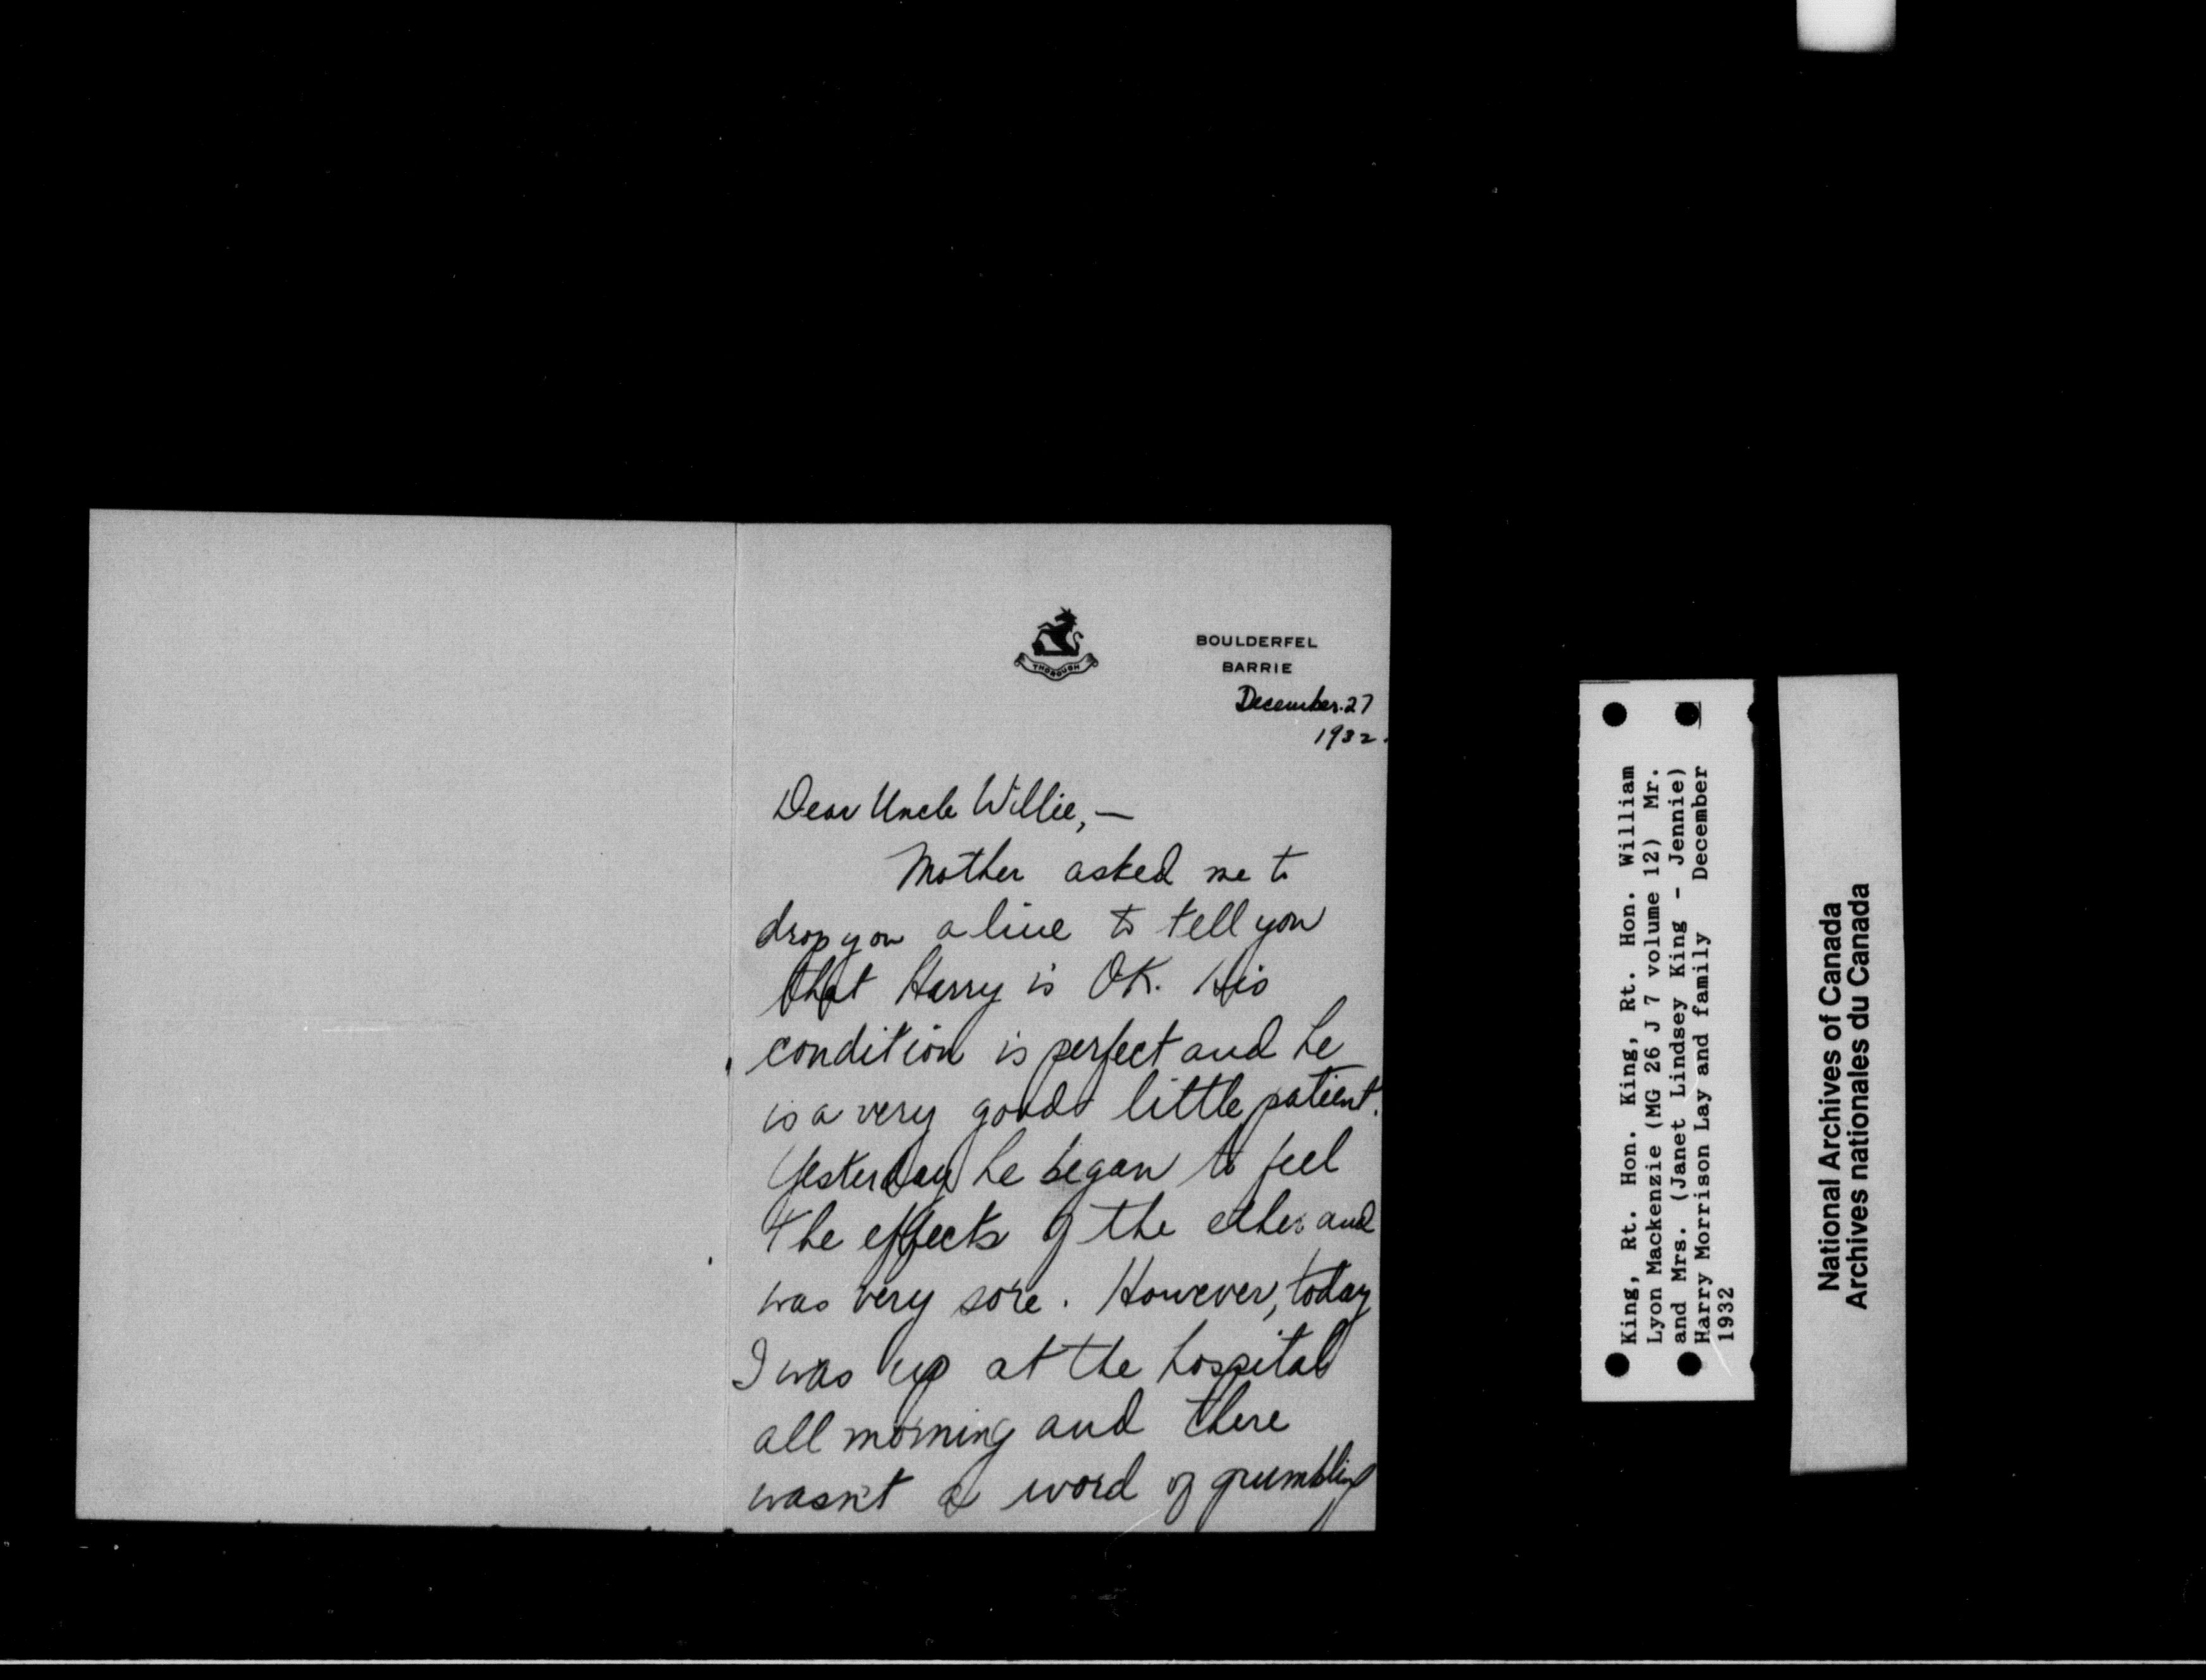 THOROUGH
BOULDERFEL
BARRIE
December 27
1932.
Dear Uncle Willie, —
Mother asked me to
drop you a line to tell you
that Harry is OK. His
condition is perfect and he
is a very good little patient.
Yesterday he began to feel
the effects of the ether and
was very sore. However, today
I was up at the hospital
all morning and there
wasn't a word of grumbling
King, Rt. Hon. King, Rt. Hon. William
Lyon Mackenzie (MG 26 J 7 volume 12) Mr.
and Mrs. (Janet Lindsey King - Jennie)
Harry Morrison Lay and family December
1932
National Archives of Canada
Archives nationales du Canada